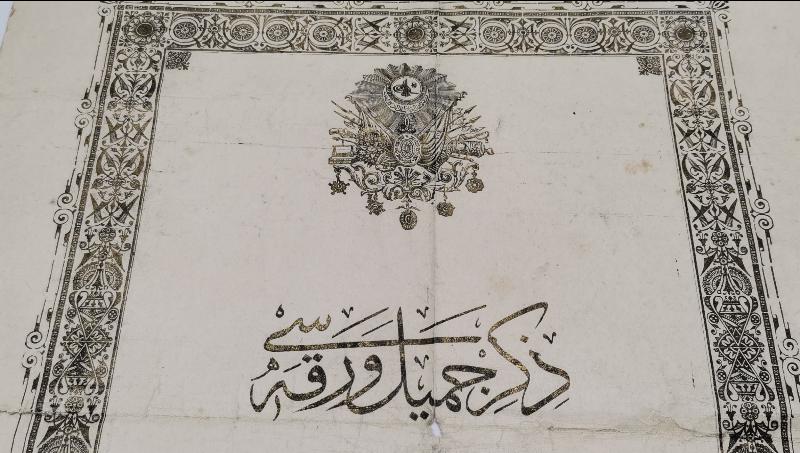 ذكر جميل ورقه سى